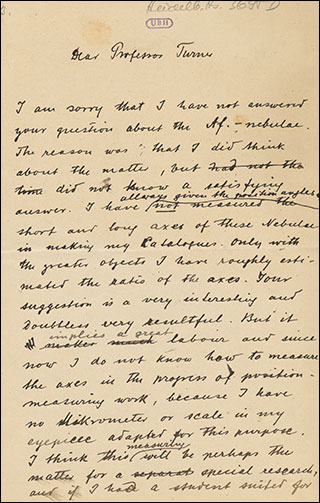 Heidelb. Hs. 3695 D
UBH
Dear Professor Turner
I am sorry that I have not answered
your question about the Af.-nebulae.
The reason was that I did think
about the matter, but had not the
time did not know a satisfying
allways given the position angles
answer. I have not measured the
short and long axes of these Nebulae
in making my Catalogues. Only with
the greater objects I have roughly esti-
mated the ratio of the axes. Your
suggestion is a very interesting and
doubtless very resultful. But it
implies a great
makes much labour and since
now I do not know how to measure
the axes in the progress of position-
measuring work, because I have
no Mikrometer or scale in my
eyepiece adapted for this purpose.
measuring
I think this will be perhaps the
matter for a separat special research,
and if I had a student suited for